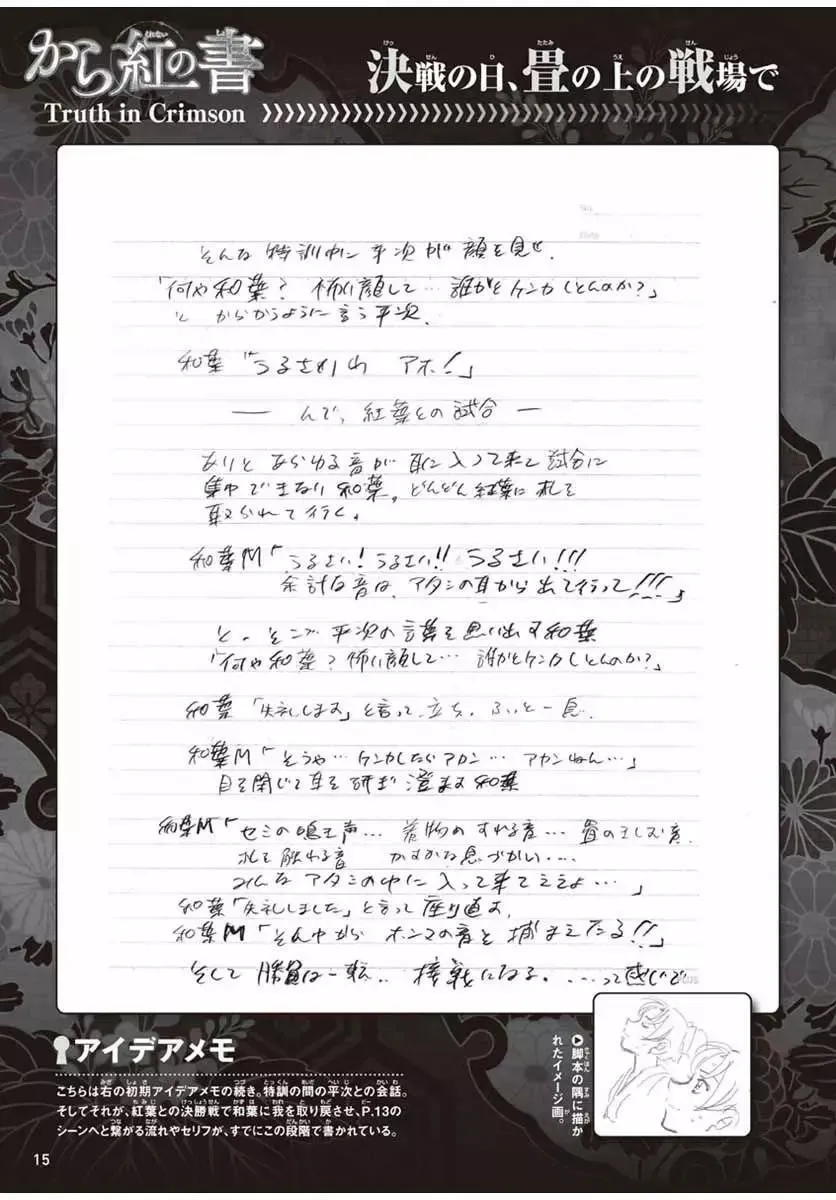 から紅の書
Truth in Crimson
決戦の日、畳の上の戦場で
そんな特訓中に平次が顔を見せ、
「何や和葉? 怖い顔して… 誰かとケンカしとんのか?」
と からかうように言う平次、
和葉「うるさいわ アホ!」
― んで、紅葉との試合 ―
ありと あらゆる音が 耳に入って来て 試合に
集中できない和葉。どんどん紅葉に札を
取られて行く。
和葉M「うるさい! うるさい!! うるさい!!!
余計な音は、アタシの耳から出て行って!!!」
と、そこで 平次の言葉を思い出す和葉
「何や和葉? 怖い顔して… 誰かとケンカしとんのか?」
和葉「失礼します」と言って、立ち、ふぅと一息、
和葉M「そうや… ケンカしたらアカン… アカンねん…」
目を閉じて 耳を研ぎ澄ます和葉
和葉M「セミの鳴き声… 着物のすれる音… 畳のきしむ音
札を触わる音 かすかな息づかい…
みんな アタシの中に 入って来てええよ…」
和葉「失礼しました」と言って 座り直す、
和葉M「そん中から ホンマの音を 捕まえたる!!」
そして 勝負は一転‥ 接戦になる。…って感じで
アイデアメモ
こちらは右の初期アイデアメモの続き。特訓の間の平次との会話。
そしてそれが、紅葉との決勝戦で和葉に我を取り戻させ、P.13の
シーンへと繋がる流れやセリフが、すでにこの段階で書かれている。
▶脚本の隅に描か
れたイメージ画。
15